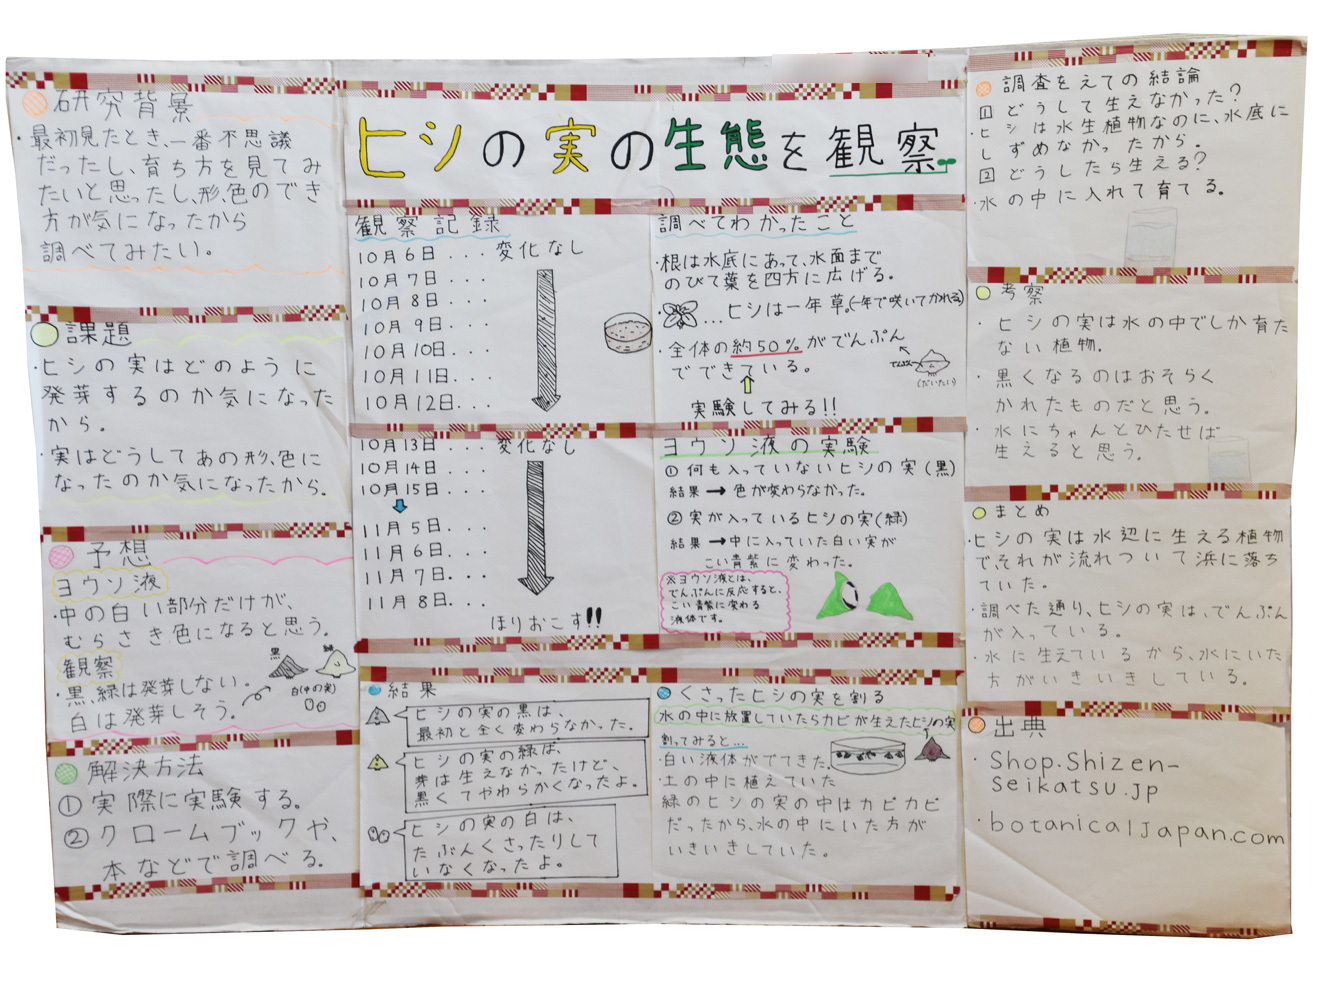 ヒシの実の生態を観察
研究背景
・最初見たとき、一番不思議
だったし、育ち方を見てみ
たいと思ったし、形、色のでき
方が気になったから
調べてみたい。
課題
・ヒシの実はどのように
発芽するのか気になった
から。
・実はどうしてあの形、色に
なったのか気になったから。
予想
ヨウソ液
・中の白い部分だけが、
むらさき色になると思う。
観察
・黒、緑は発芽しない。
白は発芽しそう。
黒
緑
白(中の実)
解決方法
①実際に実験する。
②クロームブックや、
本などで調べる。
観察記録
10月6日...変化なし
10月7日...
10月8日...
10月9日...
10月10日...
10月11日...
10月12日...
10月13日...変化なし
10月14日...
10月15日...
11月5日...
11月6日...
11月7日...
11月8日...
ほりおこす!!
結果
ヒシの実の黒は、
最初と全く変わらなかった。
ヒシの実の緑は、
芽は生えなかったけど、
黒くてやわらかくなったよ。
ヒシの実の白は、
たぶんくさったりして
いなくなったよ。
調べてわかったこと
・根は水底にあって、水面まで
のびて葉を四方に広げる。
・...ヒシは一年草。(一年で咲いてかれる)
・全体の約50%がでんぷん
でできている。
でんぷん
(だいたい)
実験してみる!!
ヨウソ液の実験
①何も入っていないヒシの実(黒)
結果→色が変わらなかった。
②実が入っているヒシの実(緑)
結果→中に入っていた白い実が
こい青紫に変わった。
※ヨウソ液とは、
でんぷんに反応すると、
こい青紫に変わる
液体です。
くさったヒシの実を割る
水の中に放置していたらカビが生えたヒシの実
割ってみると...
・白い液体がでてきた。
土の中に植えていた
緑のヒシの実の中はカピカピ
だったから、水の中にいた方が
いきいきしていた。
調査をえての結論
1 どうして生えなかった?
・ヒシは水生植物なのに、水底に
しずめなかったから。
2 どうしたら生える?
・水の中に入れて育てる。
考察
・ヒシの実は水の中でしか育た
ない植物。
・黒くなるのはおそらく
かれたものだと思う。
・水にちゃんとひたせば
生えると思う。
まとめ
・ヒシの実は水辺に生える植物
でそれが流れついて浜に落ち
ていた。
・調べた通り、ヒシの実は、でんぷん
が入っている。
・水に生えているから、水にいた
方がいきいきしている。
出典
・Shop.Shizen-
seikatsu.jp
・botanicaljapan.com